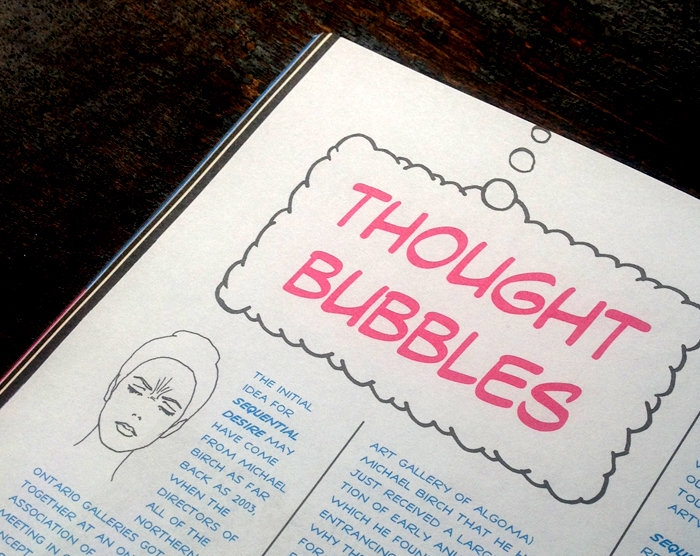 THOUGHT
BUBBLES
THE INITIAL
IDEA FOR
SEQUENTIAL
DESIRE MAY
HAVE COME
FROM MICHAEL
BIRCH AS FAR
BACK AS 2003,
WHEN THE
DIRECTORS OF
ALL OF THE
NORTHERN
ONTARIO GALLERIES GOT
TOGETHER AT AN
ASSOCIATION OF
MEETING IN
ART GALLERY OF ALGOMA)
MICHAEL BIRCH THAT HE
JUST RECEIVED A
TION OF EARLY
WHICH HE
ENTRANCING
WHY
FOR